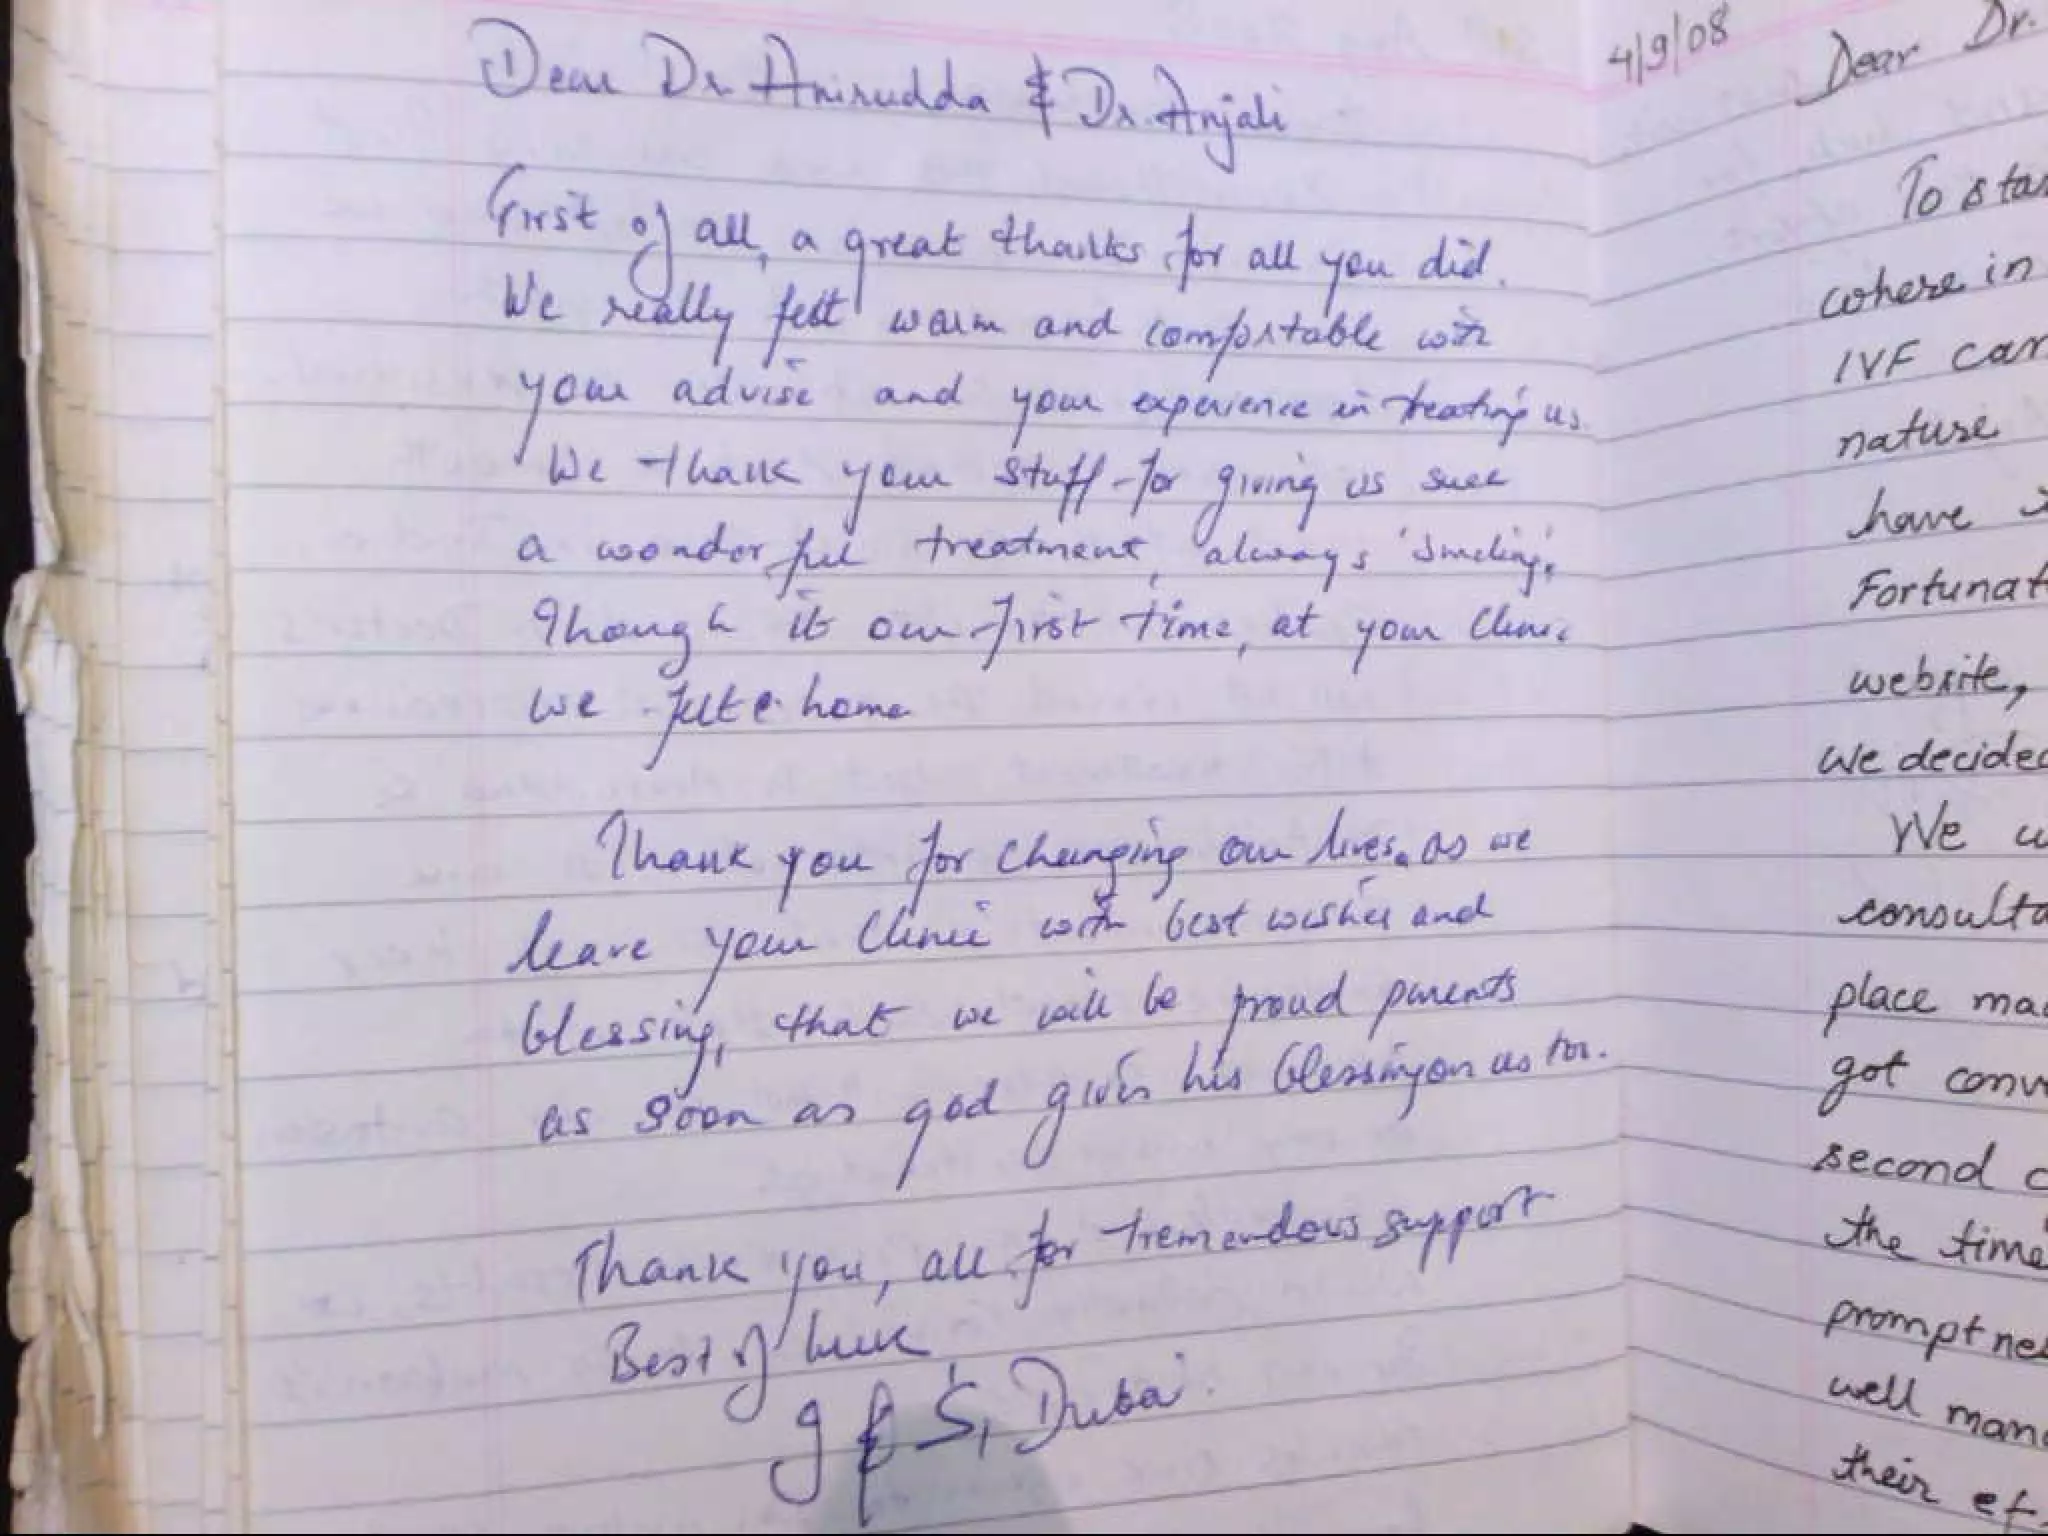 Dear Dr. Anirudda & Dr. Anjali
First of all, a great thanks for all you did.
We really felt warm and comfortable with
your advise and your experience in treating us.
We thank your stuff for giving us such
a wonderful treatment, always 'smiling'.
Though it our first time, at your clinic
we felt @ home
Thank you for changing our lives. as we
leave your clinic with best wishes and
blessing, that we will be proud parents
as soon as god gives his blessing on us too.
Thank you, all for tremendous support
Best of luck
g & S, Dubai.
4/9/08
Dear Dr.
To star
where in
IVF can
nature
have
Fortunat
website,
we decided
We w
consulta
place mad
got conv
second c
the time
promptnes
well mana
their ef